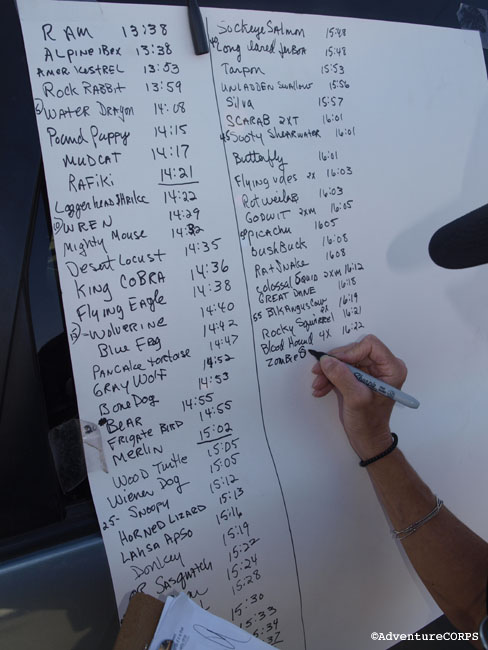 RAM 13:38
Alpine iBex 13:38
Amor Kestrel 13:53
Rock Rabbit 13:59
5) Water Dragon 14:08
Pound Puppy 14:15
Mudcat 14:17
Rafiki 14:21
Loggerhead Shrike 14:22
10) Wren 14:29
Mighty Mouse 14:32
Desert Locust 14:35
King Cobra 14:36
Flying Eagle 14:38
15- Wolverine 14:40
Blue Frog 14:42
Pancake Tortoise 14:47
Gray Wolf 14:52
Bone Dog 14:53
Bear 14:55
Frigate Bird 14:55
Merlin 15:02
Wood Turtle 15:05
Wiener Dog 15:05
25- Snoopy 15:12
Horned Lizard 15:13
Lahsa Apso 15:16
Donkey 15:19
Sasquitch 15:22
15:24
15:28
15:30
15:33
15:34
Sockeye Salmon 15:48
40 Long eared jerboa 15:48
Tarpon 15:53
Unladden Swallow 15:56
Silva 15:57
Scarab 2XT 16:01
45 Sooty Shearwater 16:01
Butterfly 16:01
Flying 2x 16:03
Rotweiler 16:03
Godwit 2xm 16:05
Picachu 1605
BushBuck 16:08
Rat Snake 1608
Colossal Squid 2xm 16:12
Great Dane 16:18
55 Blk Angus Cow 16:19
Rocky Squirrel 2x 16:21
Blood Hound 4x 16:22
Zombie
©AdventureCORPS